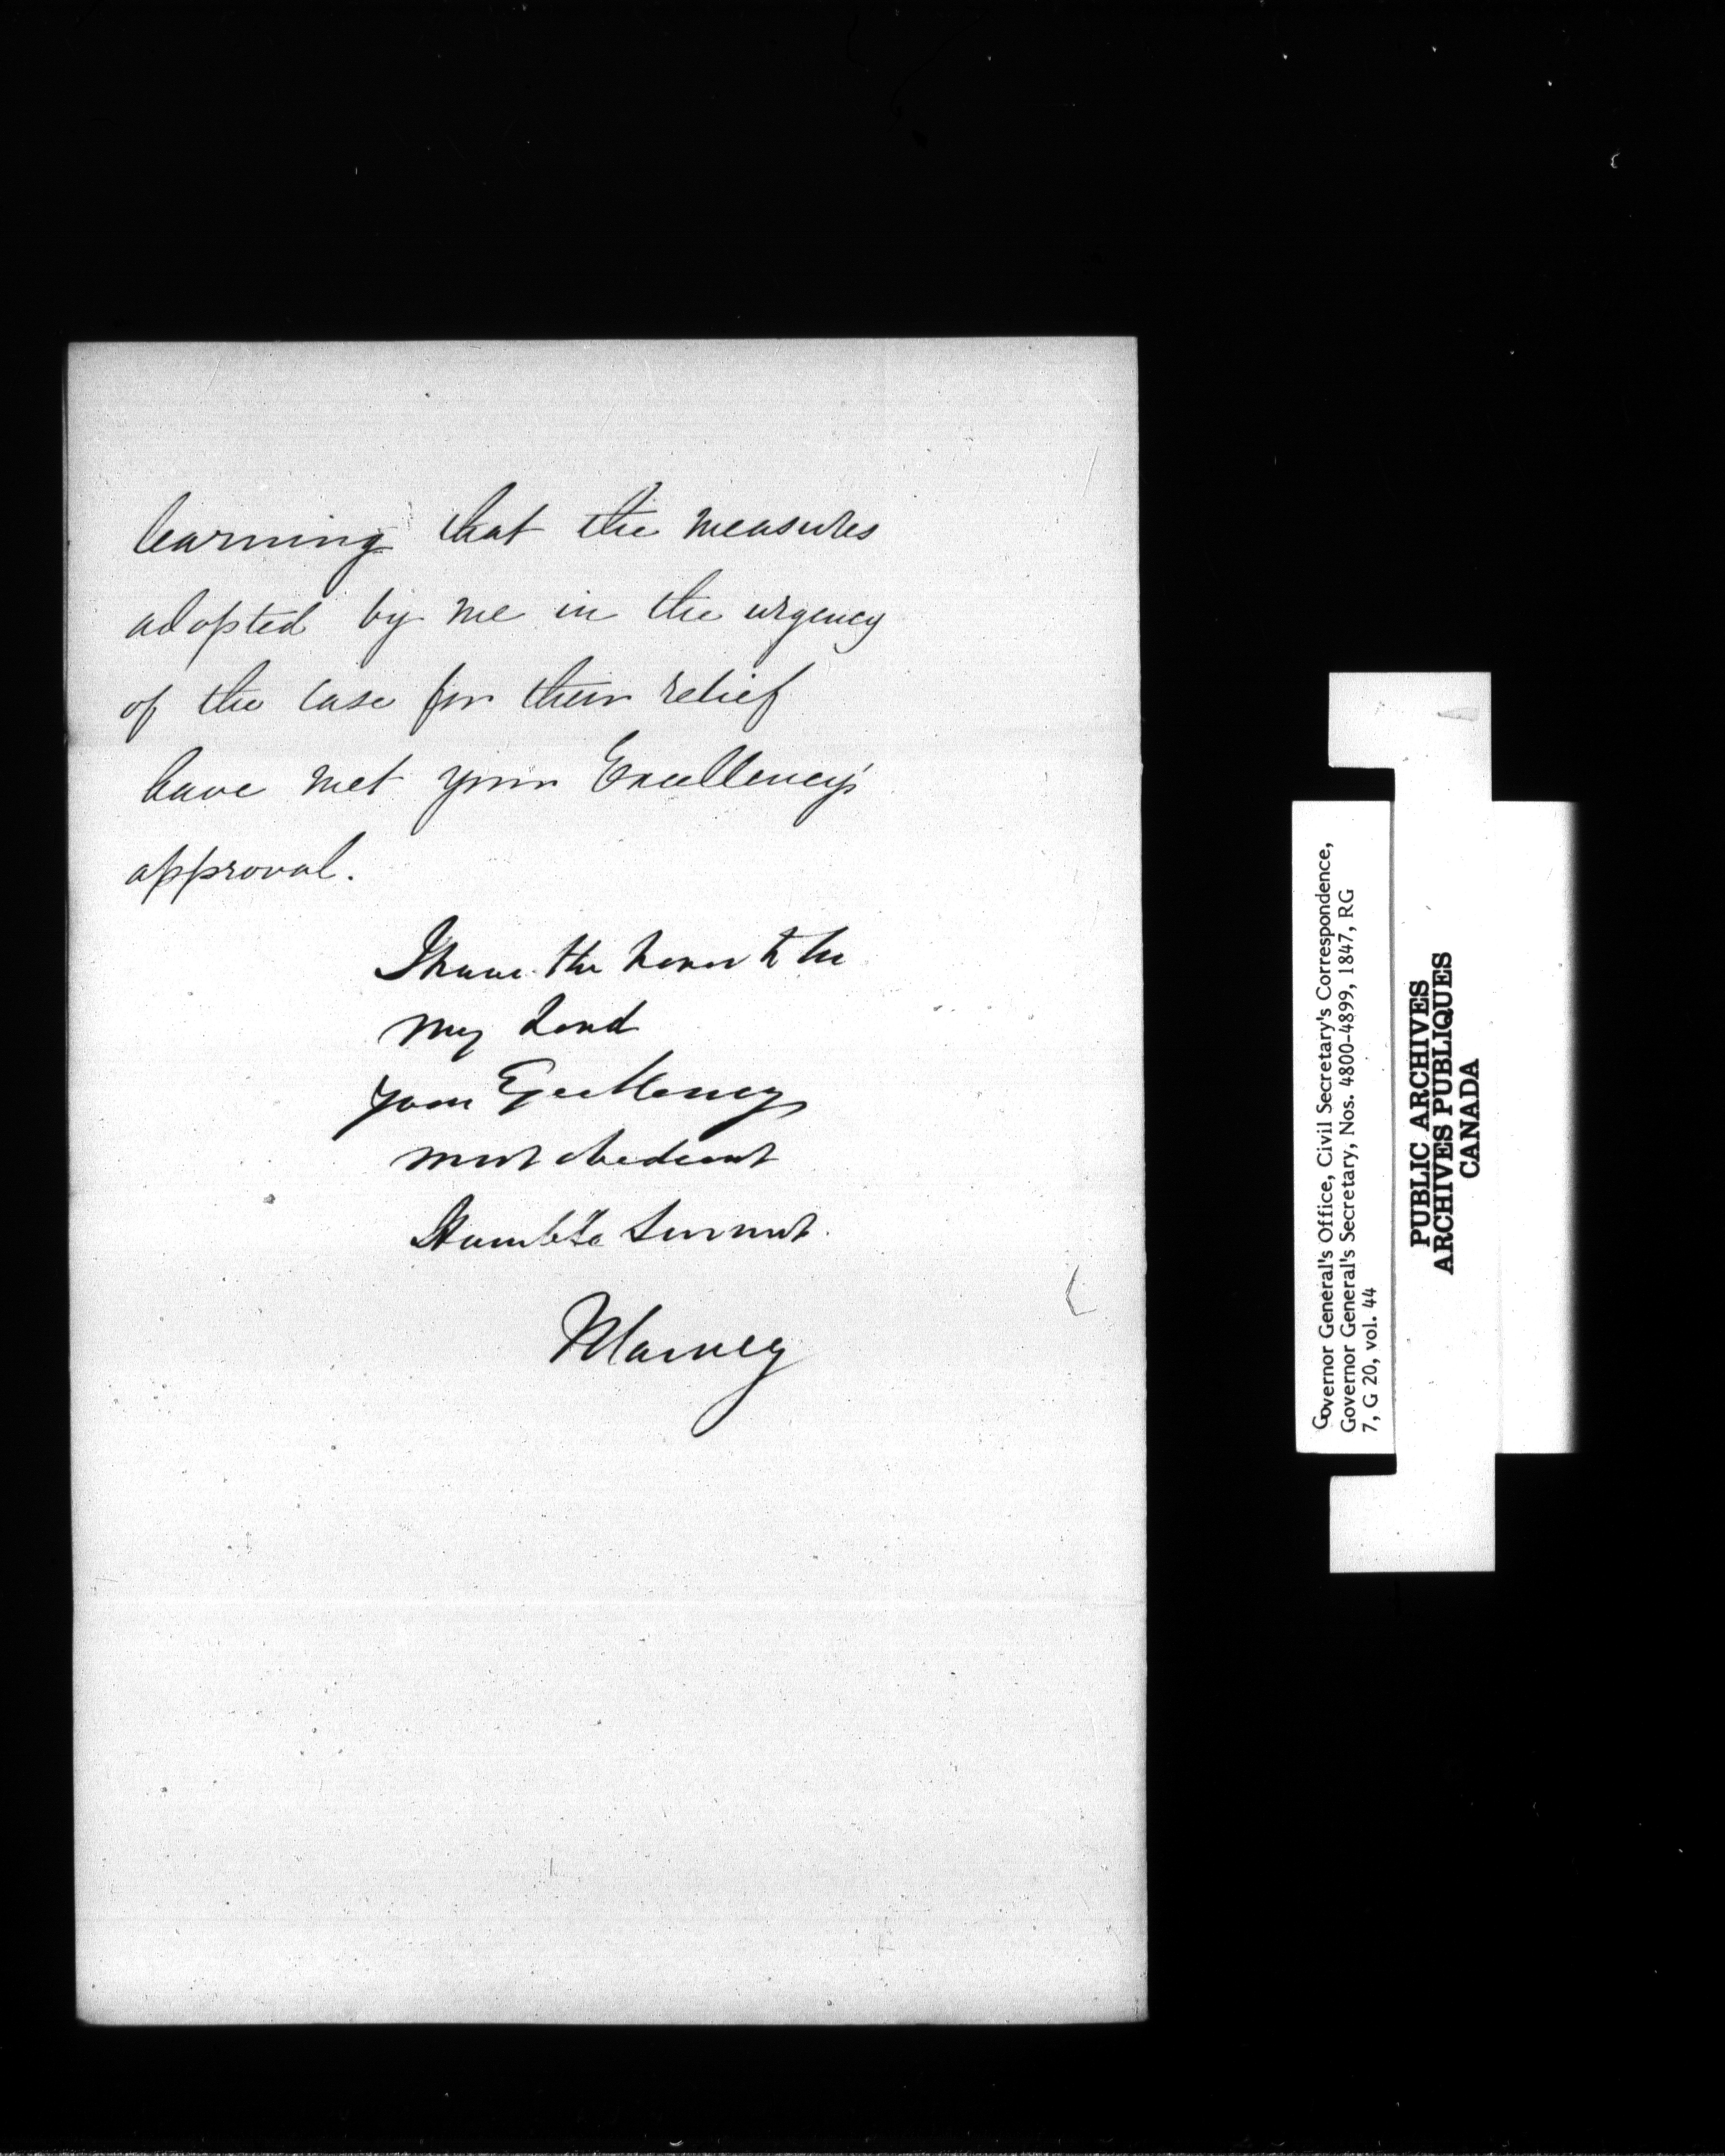 learning that the measures
adopted by me in the urgency
of the case for their relief
have met your Excellency's
approval.
I have the honor to be
My Lord
Your Excellency
most obedient
Humble Servant.
Governor General's Office, Civil Secretary's Correspondence,
Governor General's Secretary, Nos. 4800-4899, 1847, RG
7, G 20, vol. 44
PUBLIC ARCHIVES
ARCHIVES PUBLIQUES
CANADA